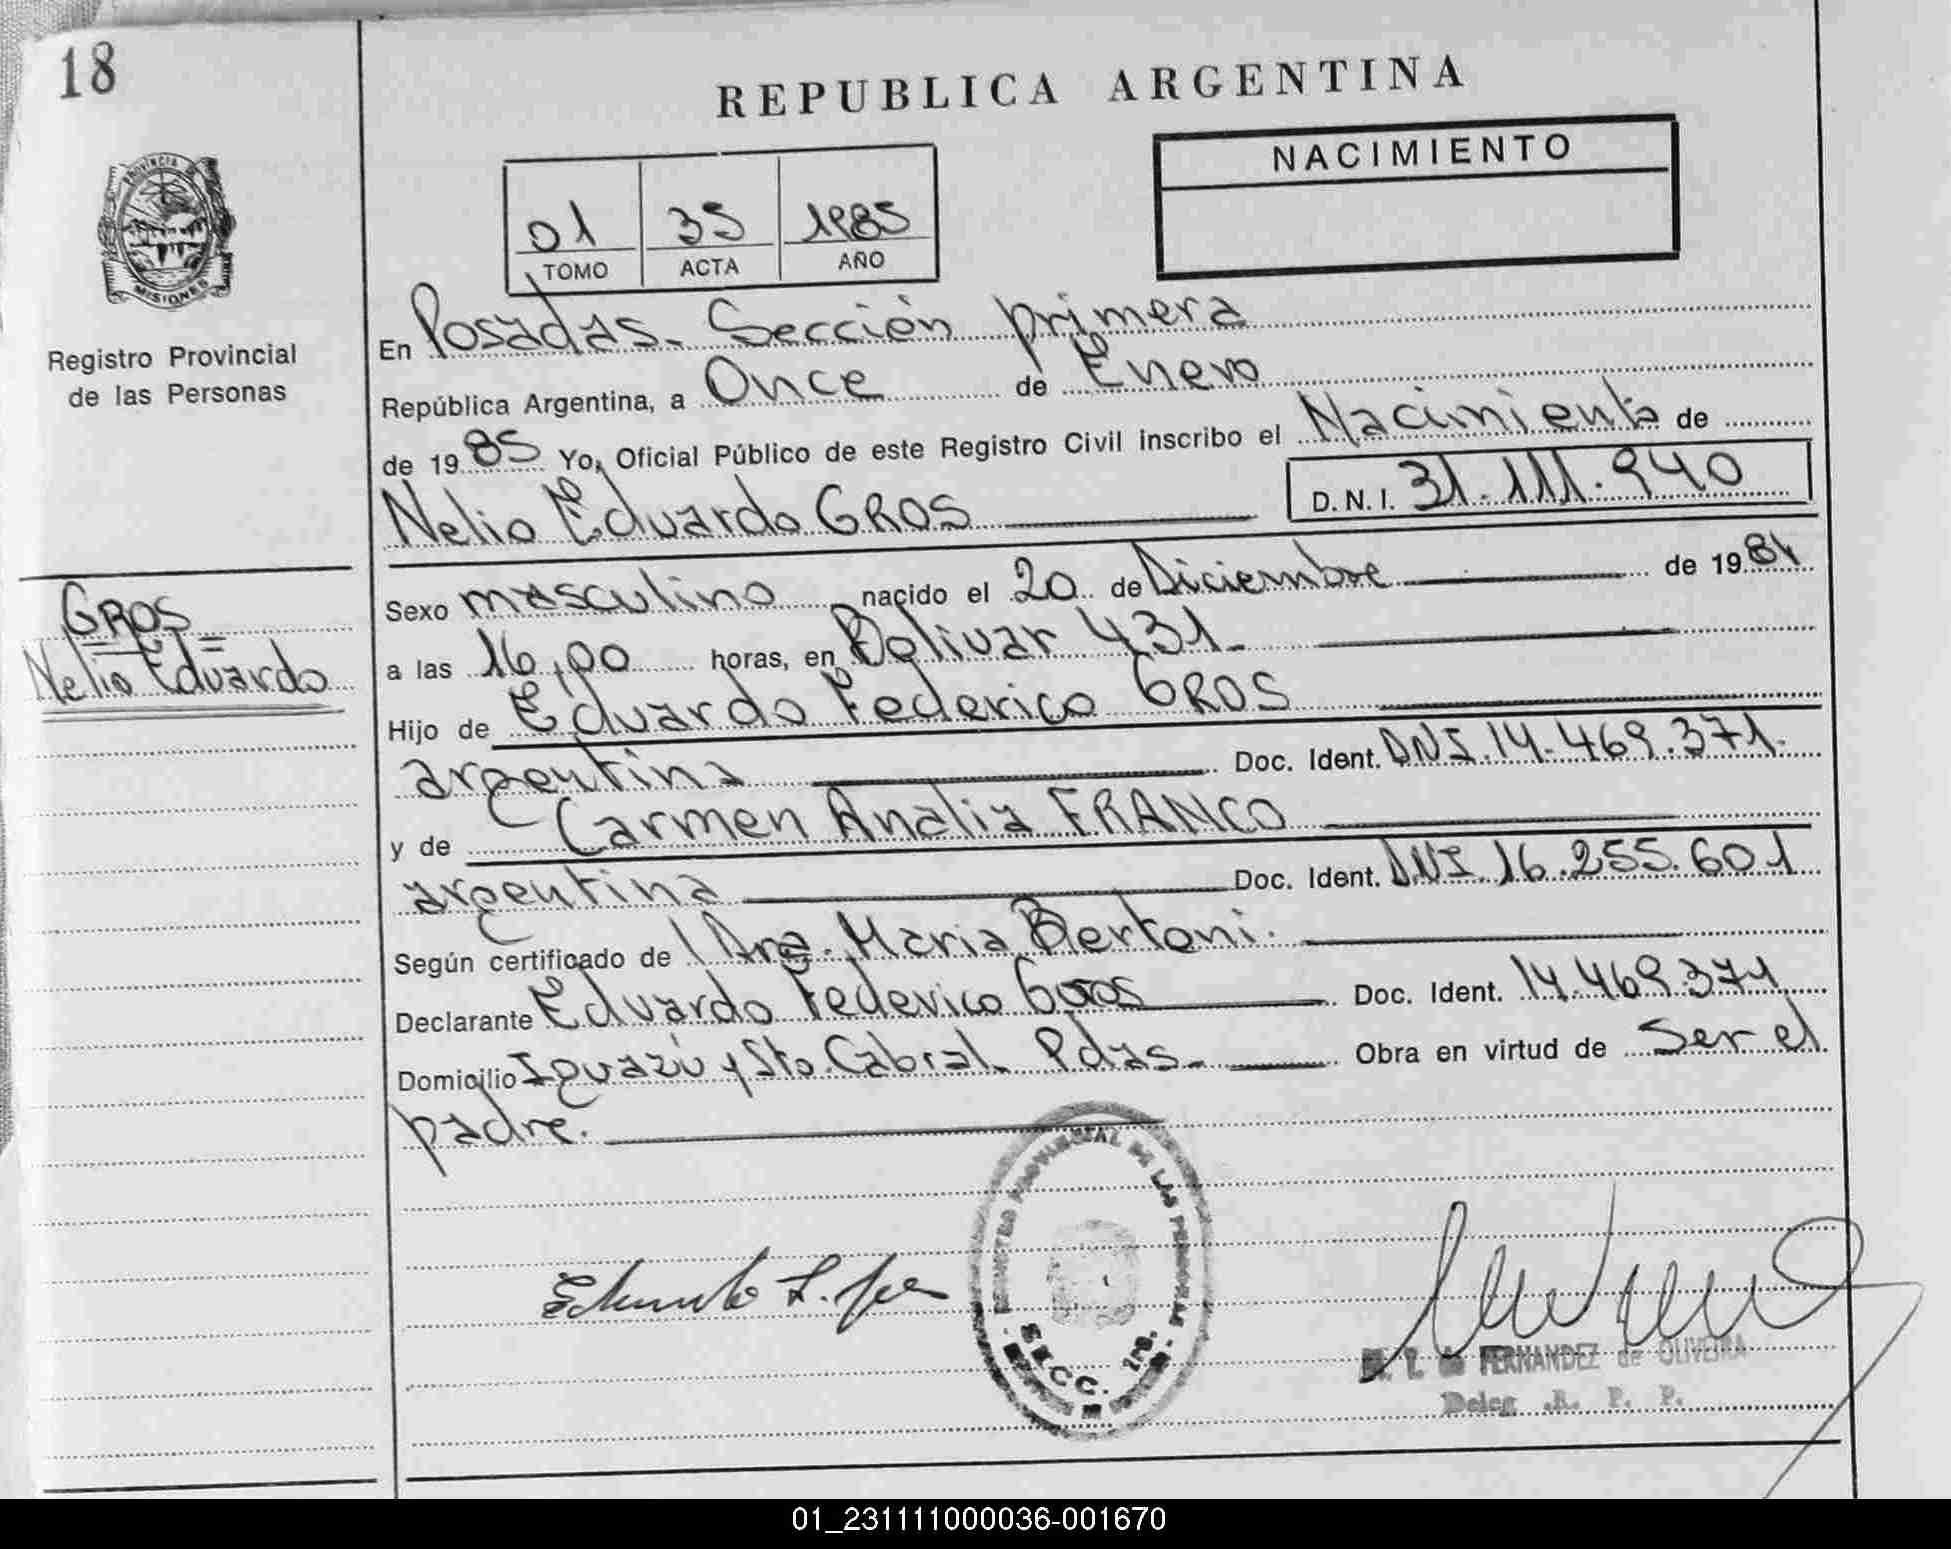 18
REPUBLICA ARGENTINA
NACIMIENTO
01 35 1985
TOMO ACTA AÑO
PROVINCIA DE
MISIONES
Registro Provincial
de las Personas
En Posadas. Sección primera
República Argentina, a Once de Enero
de 1985 Yo, Oficial Público de este Registro Civil inscribo el Nacimiento de
Nelio Eduardo GROS D.N.I. 31.111.940
GROS
Nelio Eduardo
Sexo masculino nacido el 20 de Diciembre de 1984
a las 16,00 horas, en Bolivar 431.
Hijo de Eduardo Federico GROS
argentina Doc. Ident. DNI.14.469.371.
y de Carmen Analia FRANCO
argentina Doc. Ident. DNI.16.255.601
Según certificado de Dra. Maria Bertoni.
Declarante Eduardo Federico Gros Doc. Ident. 14.469.371
Domicilio Iguazú y Sto. Cabral. Pdas. Obra en virtud de ser el
padre.
PROVINCIAL DE LAS
SECC. 1ra.
FERNANDEZ de OLIVEIRA
Deleg. R. P. P.
01_231111000036-001670